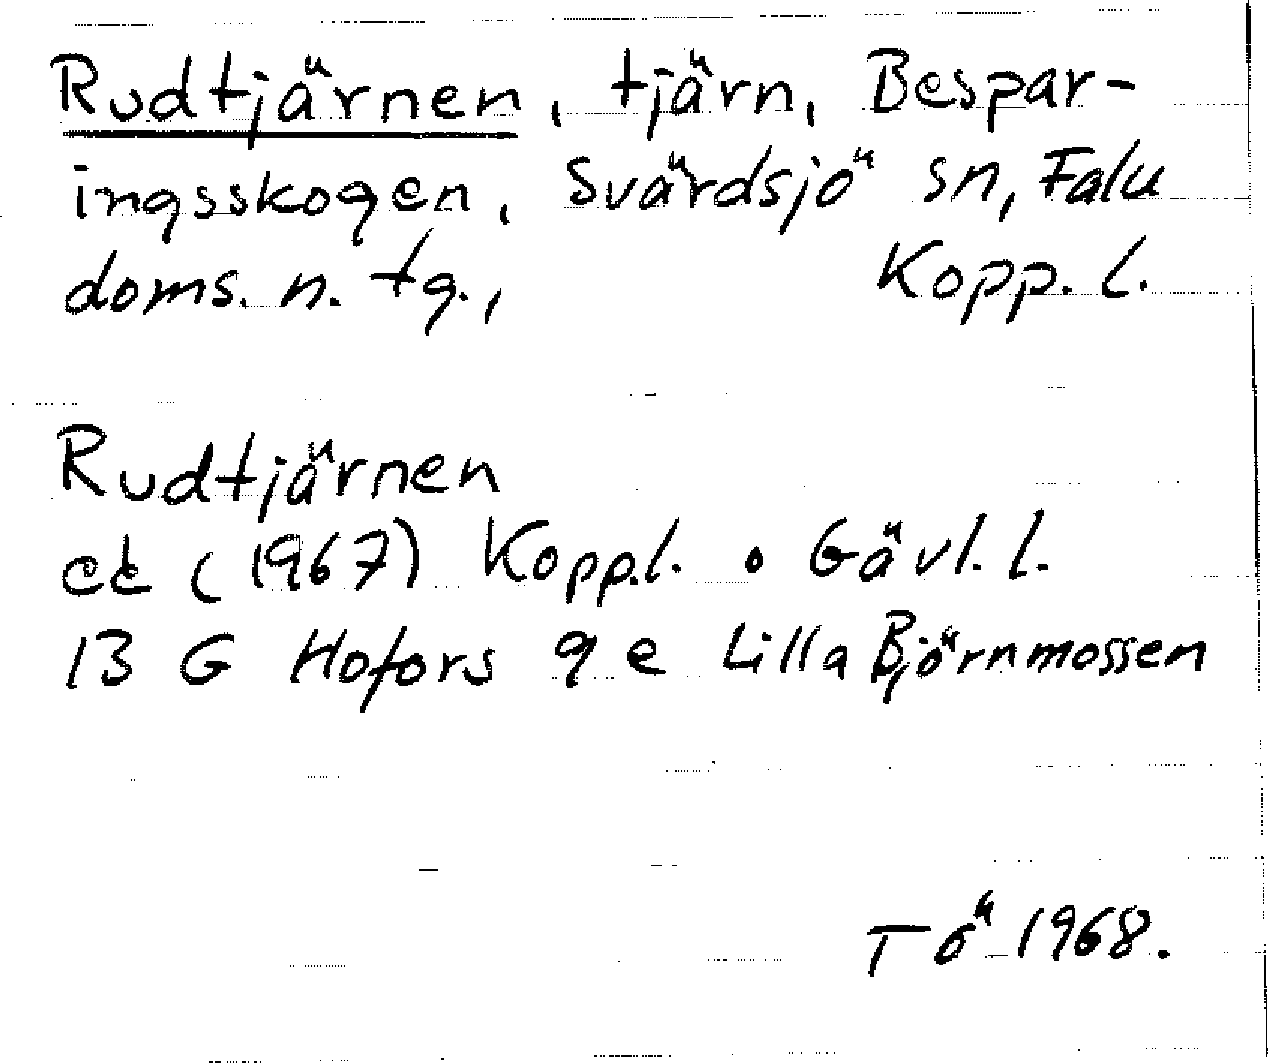 Rudtjärnen, tjärn, Bespar-
ingsskogen, Svärdsjö sn, Falu
doms. n. tg., Kopp. l.
Rudtjärnen
ek (1967) Kopp.l. o Gävl. l.
13 G Hofors 9 e Lilla Björnmossen
TÖ 1968.